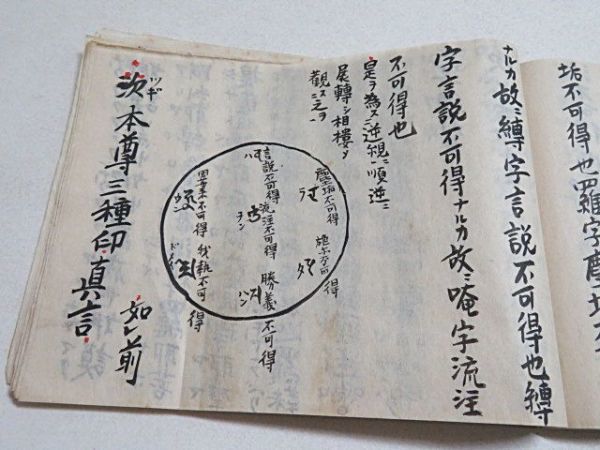 垢不可得也羅字塵垢不
ナルカ故ニ縛字言説不可得也縛
字言説不可得ナルカ故ニ唵字流注
不可得也
是ヲ為ス逆観ニ順逆ニ
展轉シ相樓ヲ
觀スヘ之ヲ
塵垢不可得
不可得
言説不可得
流注不可得
勝義不可得
因業不可得
我執不可得
バン
ハン
次本尊三種印真言
ツギ
如レ前